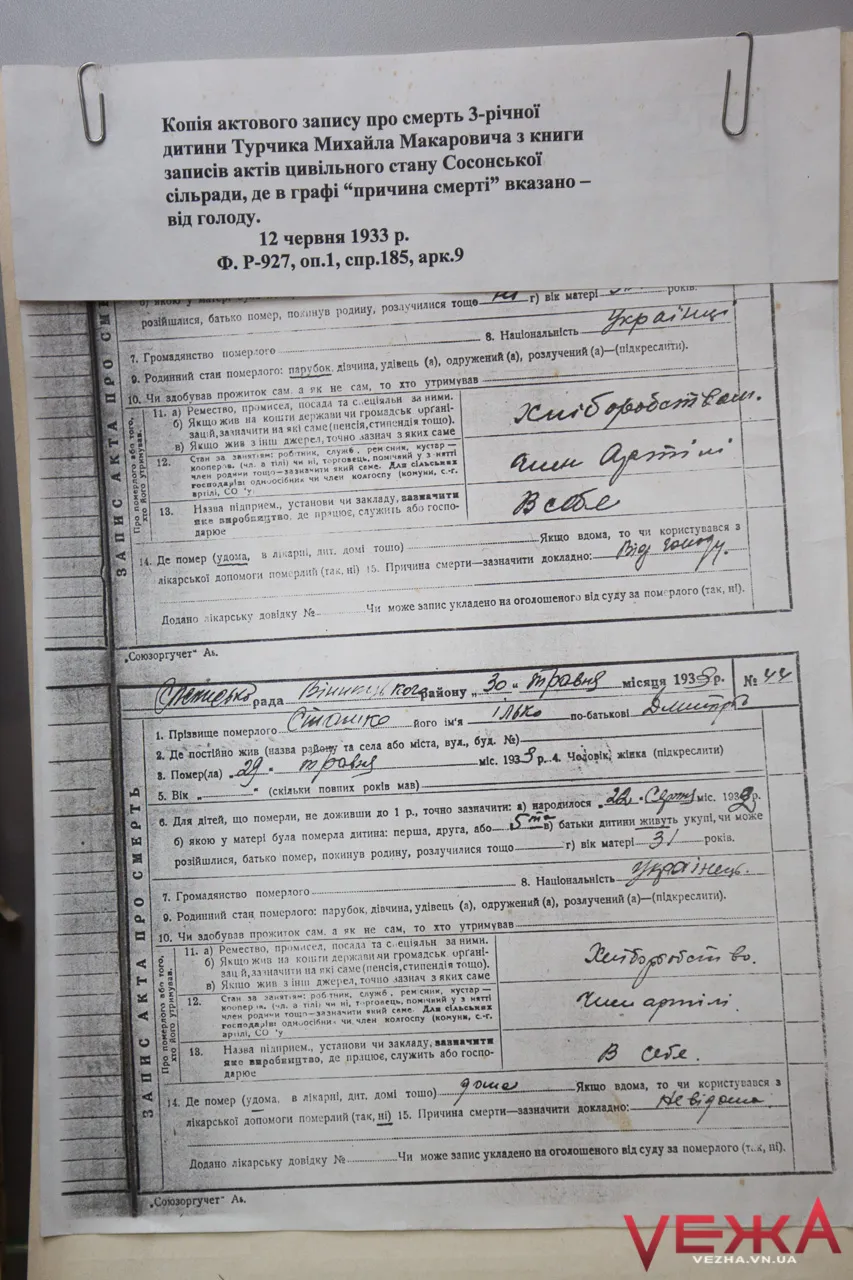 Копія актового запису про смерть 3-річної
дитини Турчика Михайла Макаровича з книги
записів актів цивільного стану Сосонської
сільради, де в графі “причина смерті” вказано –
від голоду.
12 червня 1933 р.
Ф. Р-927, оп.1, спр.185, арк.9
розійшлися, батько помер, покинув родину, розлучилися тощо г) вік матері років.
7. Громадянство померлого 8. Національність Українці
9. Родинний стан померлого: парубок, дівчина, удівець (а), одружений (а), розлучений (а)—(підкреслити).
10. Чи здобував прожиток сам, а як не сам, то хто утримував
ЗАПИС АКТА ПРО
Про померлого або того, хто його утримував.
11. а) Ремество, промисел, посада та спеціяльн за ними.
б) Якщо жив на кошти держави чи громадськ органі-
зацій, зазначити на які саме (пенсія, стипендія тощо).
в) Якщо жив з інш джерел, точно зазнач з яких саме
Хліборобством.
12. Стан за заняттям: робітник, служб, ремісник, кустар—
кооперов. (чл. а тілі) чи ні, торговець, помічний у з нятті
член родини тощо—зазначити який саме. Для сільських
господарів: одноосібник чи член колгоспу (комуни, с.-г.
артілі, СО У)
член Артілі
13. Назва підприєм., установи чи закладу, зазначити
яке виробництво, де працює, служить або госпо-
дарює
В себе
14. Де помер (удома, в лікарні, дит. домі тощо) Якщо вдома, то чи користувався з
лікарської допомоги померлий (так, ні) 15. Причина смерти—зазначити докладно: Від голоду.
Додано лікарську довідку № Чи може запис укладено на оголошеного від суду за померлого (так, ні).
„Союзоргучет“ Аь.
рада Вінницького району „30“ травня місяця 1933 р. № 44
ЗАПИС АКТА ПРО СМЕРТЬ
1. Прізвище померлого Сташко його ім'я Ілько по-батькові Дмитро
2. Де постійно жив (назва району та села або міста, вул., буд. №)
3. Помер(ла) „29“ травня міс. 1933 р. 4. Чоловік, жінка (підкреслити)
5. Вік „ “ (скільки повних років мав)
6. Для дітей, що померли, не доживши до 1 р., точно зазначити: а) народилося „22“ Серпня міс. 1932 р.
б) якою у матері була померла дитина: перша, друга, або 5та в) батьки дитини живуть укупі, чи може
розійшлися, батько помер, покинув родину, розлучилися тощо г) вік матері 31 років.
7. Громадянство померлого 8. Національність Українець.
9. Родинний стан померлого: парубок, дівчина, удівець (а), одружений (а), розлучений (а)—(підкреслити).
10. Чи здобував прожиток сам, а як не сам, то хто утримував
Про померлого або того, хто його утримував.
11. а) Ремество, промисел, посада та спеціяльн за ними.
б) Якщо жив на кошти держави чи громадськ органі-
зацій, зазначити на які саме (пенсія, стипендія тощо).
в) Якщо жив з інш джерел, точно зазнач з яких саме
Хліборобство.
12. Стан за заняттям: робітник, служб, ремісник, кустар—
кооперов. (чл. а тілі) чи ні, торговець, помічний у з нятті
член родини тощо—зазначити який саме. Для сільських
господарів: одноосібник чи член колгоспу (комуни, с.-г.
артілі, СО У)
Член артілі.
13. Назва підприєм., установи чи закладу, зазначити
яке виробництво, де працює, служить або госпо-
дарює
В себе.
14. Де помер (удома, в лікарні, дит. домі тощо) дома Якщо вдома, то чи користувався з
лікарської допомоги померлий (так, ні) 15. Причина смерти—зазначити докладно: Невідома.
Додано лікарську довідку № Чи може запис укладено на оголошеного від суду за померлого (так, ні).
„Союзоргучет“ Аь.
VEЖА
VEZHA.VN.UA